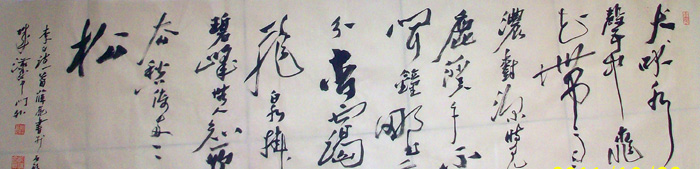 犬吠水
聲中桃
花帶雨
濃樹深時見
鹿溪午不
聞鐘野竹
分青靄
飛泉掛
碧峰無人知所
去愁倚兩三
松
李白詩一首